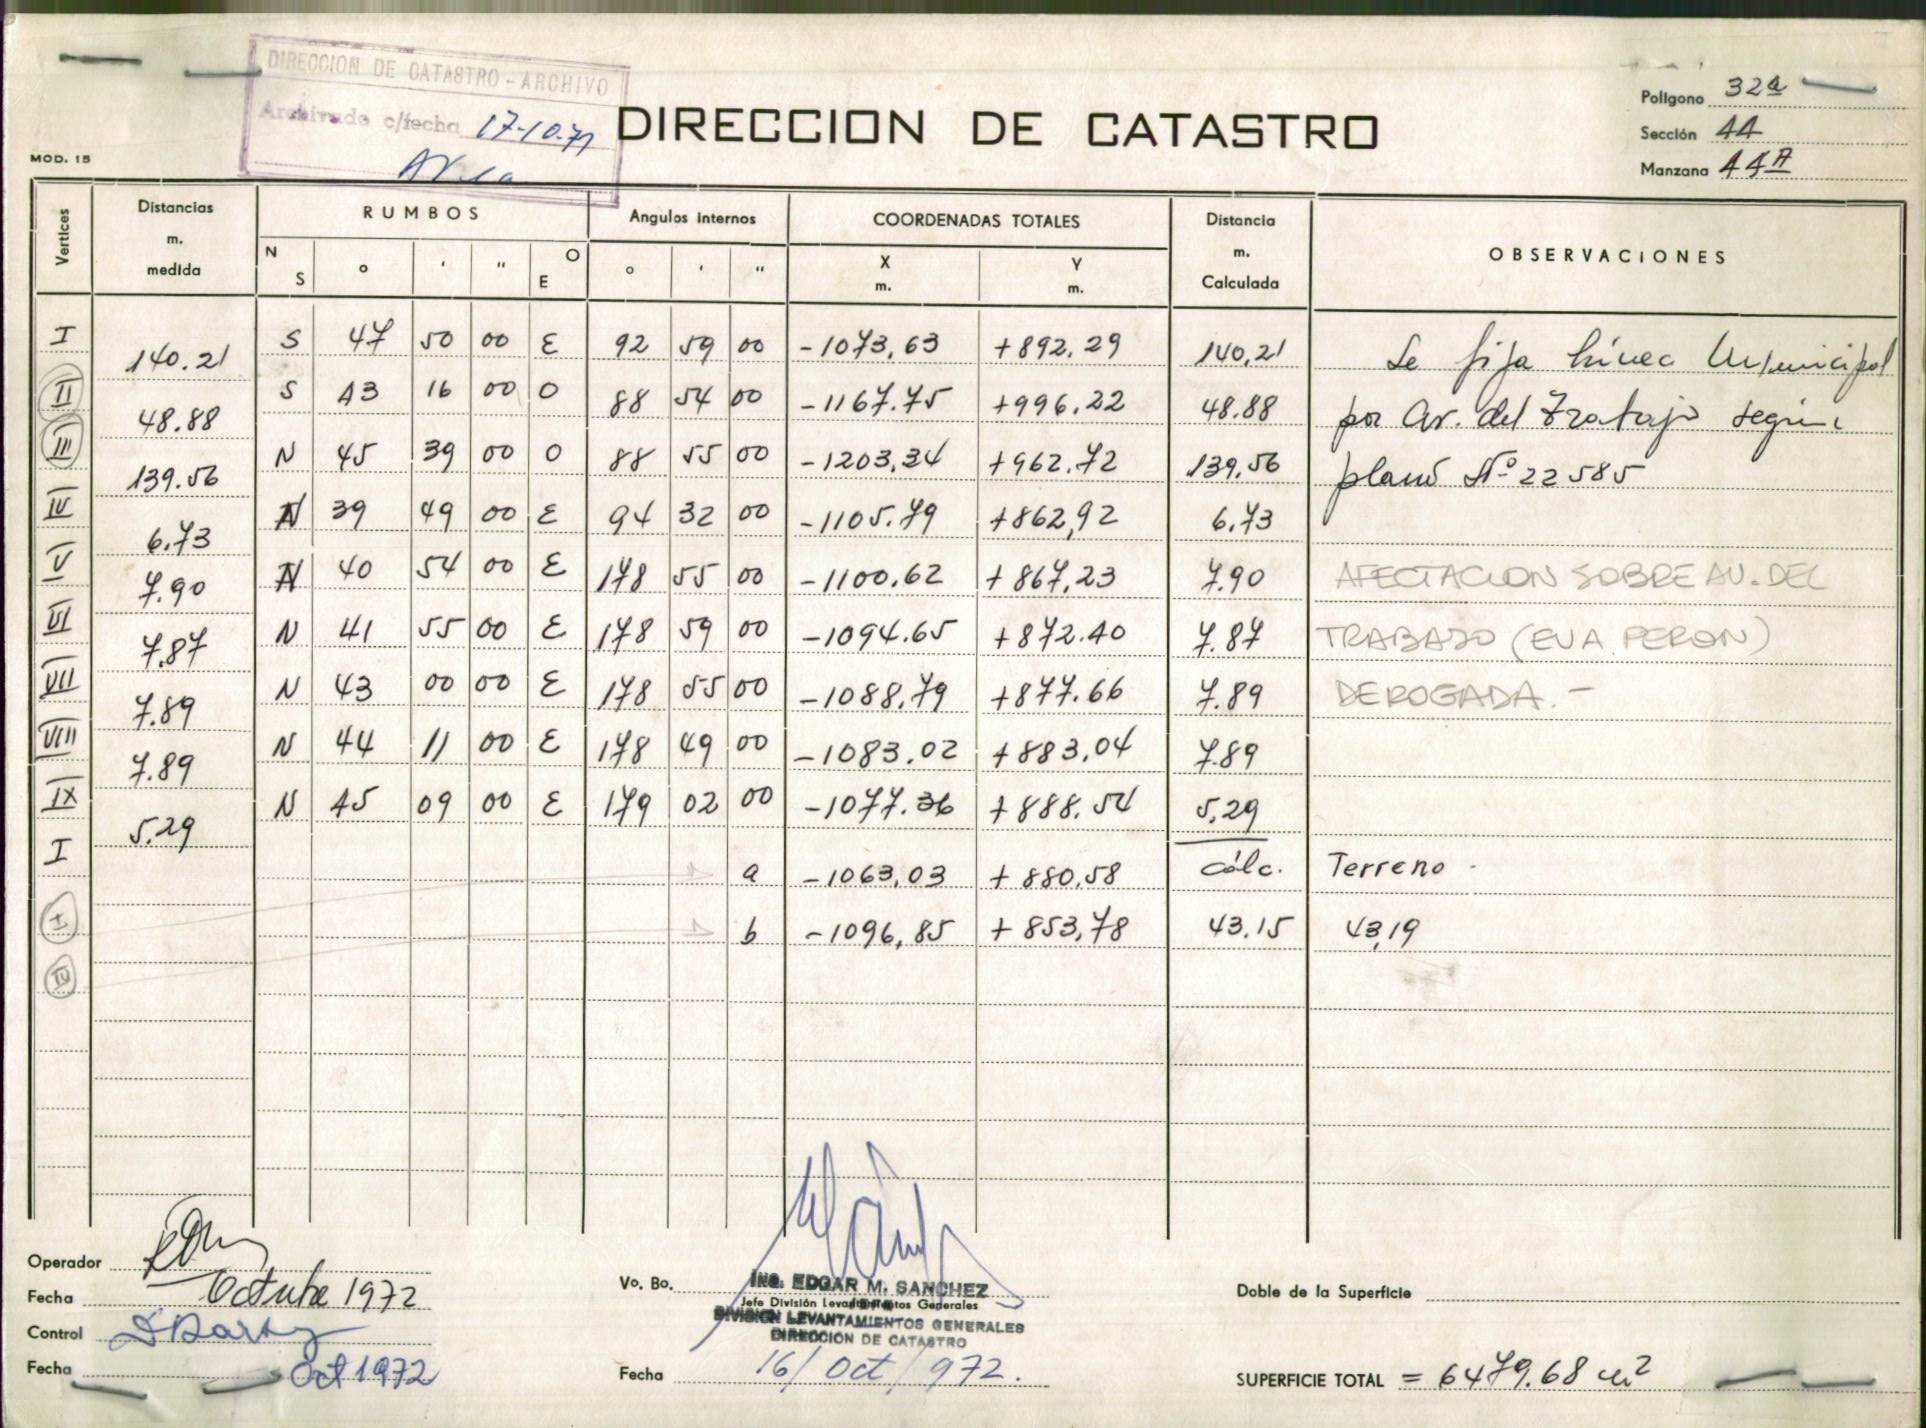 DIRECCION DE CATASTRO - ARCHIVO
Archivado c/fecha 17-10-
DIRECCION DE CATASTRO
Polígono 32a
Sección 44
Manzana 44A
MOD. 15
Vertices Distancias m. medida RUMBOS Angulos internos COORDENADAS TOTALES Distancia m. Calculada OBSERVACIONES
N S ° ' " O E ° ' " X m. Y m.
I 140.21 S 47 50 00 E 92 59 00 -1073,63 +892,29 140,21 Se fija línea Municipal
II 48.88 S 43 16 00 O 88 54 00 -1167.75 +996,22 48.88 por Av. del Trabajo según
III 139.56 N 45 39 00 O 88 55 00 -1203,34 +962.72 139,56 plano Nº 22585
IV 6.73 N 39 49 00 E 94 32 00 -1105.79 +862,92 6.73
V 7.90 N 40 54 00 E 178 55 00 -1100.62 +867,23 7.90 AFECTACION SOBRE AV. DEL
VI 7.87 N 41 55 00 E 178 59 00 -1094.65 +872.40 7.87 TRABAJO (EVA PERON)
VII 7.89 N 43 00 00 E 178 55 00 -1088,79 +877.66 7.89 DEROGADA. -
VIII 7.89 N 44 11 00 E 178 49 00 -1083.02 +883,04 7.89
IX 5.29 N 45 09 00 E 179 02 00 -1077.36 +888.54 5,29
I a -1063,03 +880,58 cálc. Terreno
I b -1096,85 +853,78 43.15 43,19
IV
Operador
Fecha Octubre 1972
Control
Fecha Oct 1972
Vo. Bo. Ing. EDGAR M. SANCHEZ
Jefe División Levantamientos Generales
DIVISION LEVANTAMIENTOS GENERALES
DIRECCION DE CATASTRO
Fecha 16/Oct/972.
Doble de la Superficie
SUPERFICIE TOTAL = 6479.68 m²